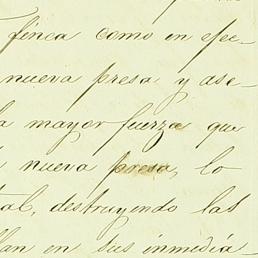 finca como en efec-
nueva presa y ase-
a mayor fuerza que
nueva presa, lo
tal, destruyendo las
llan en sus inmedia-